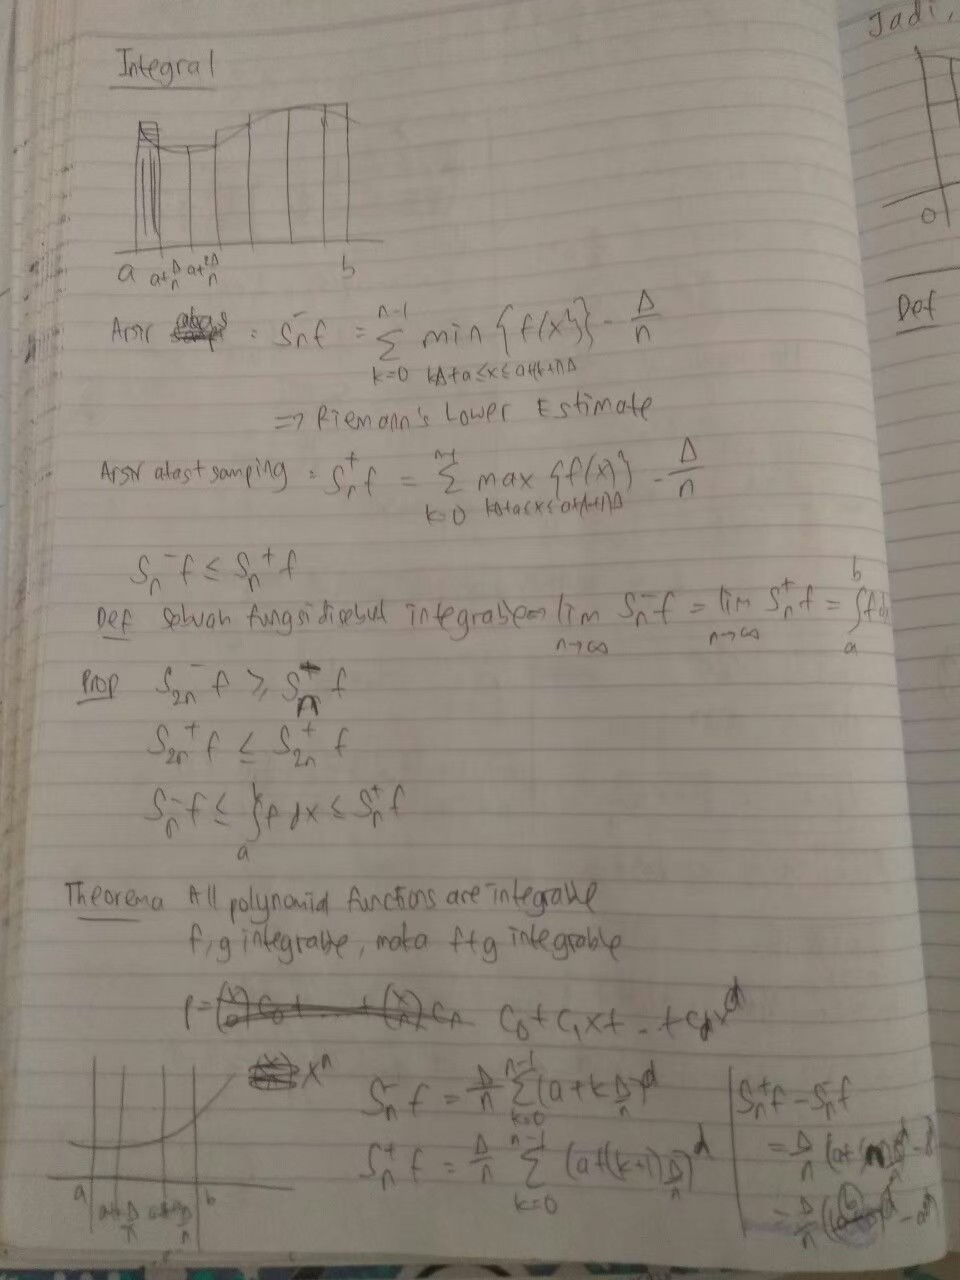 Jadi,
Integral
a a+Δ/n a+2Δ/n b
0
Def
Arsir : Sₙ⁻f = Σ_{k=0}^{n-1} min {f(x)} · Δ/n
kΔ+a≤x≤a+(k+1)Δ
=> Riemann's Lower Estimate
Arsir samping : Sₙ⁺f = Σ_{k=0}^{n-1} max {f(x)} · Δ/n
kΔ+a≤x≤a+(k+1)Δ
Sₙ⁻f ≤ Sₙ⁺f
Def sebuah fungsi disebut integrable lim_{n→∞} Sₙ⁻f = lim_{n→∞} Sₙ⁺f = ∫_a^b f dx
Prop S₂ₙ⁻ f ≥ Sₙ f
S₂ₙ⁺ f ≤ S₂ₙ⁺ f
Sₙ⁻f ≤ ∫_a^b f dx ≤ Sₙ⁺f
Theorema All polynomial functions are integrable
f, g integrable, maka f+g integrable
P = C₀ + C₁x + .. + C_d x^d
xⁿ
a b
Sₙ⁻ f = Δ/n Σ_{k=0}^{n-1} (a+k Δ/n)^d
Sₙ⁺ f = Δ/n Σ_{k=0}^{n-1} (a+(k+1)Δ/n)^d
Sₙ⁺f - Sₙ⁻f
= Δ/n
= Δ/n